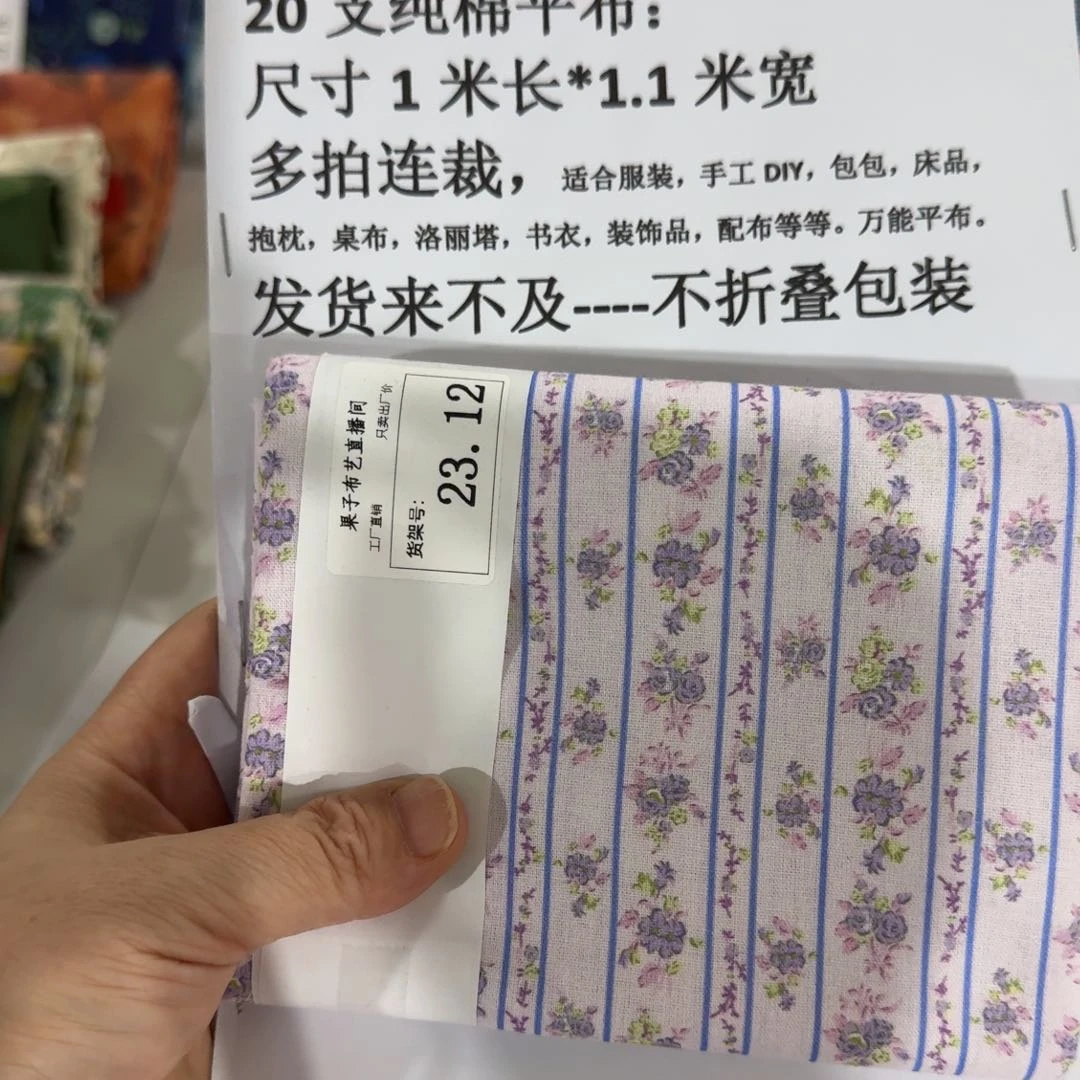 20 支纯棉平布：
尺寸 1 米长*1.1 米宽
多拍连裁，适合服装，手工 DIY，包包，床品，
抱枕，桌布，洛丽塔，书衣，装饰品，配布等等。万能平布。
发货来不及----不折叠包装
果子布艺直播间
工厂直销 只卖出厂价
货架号：
23.12